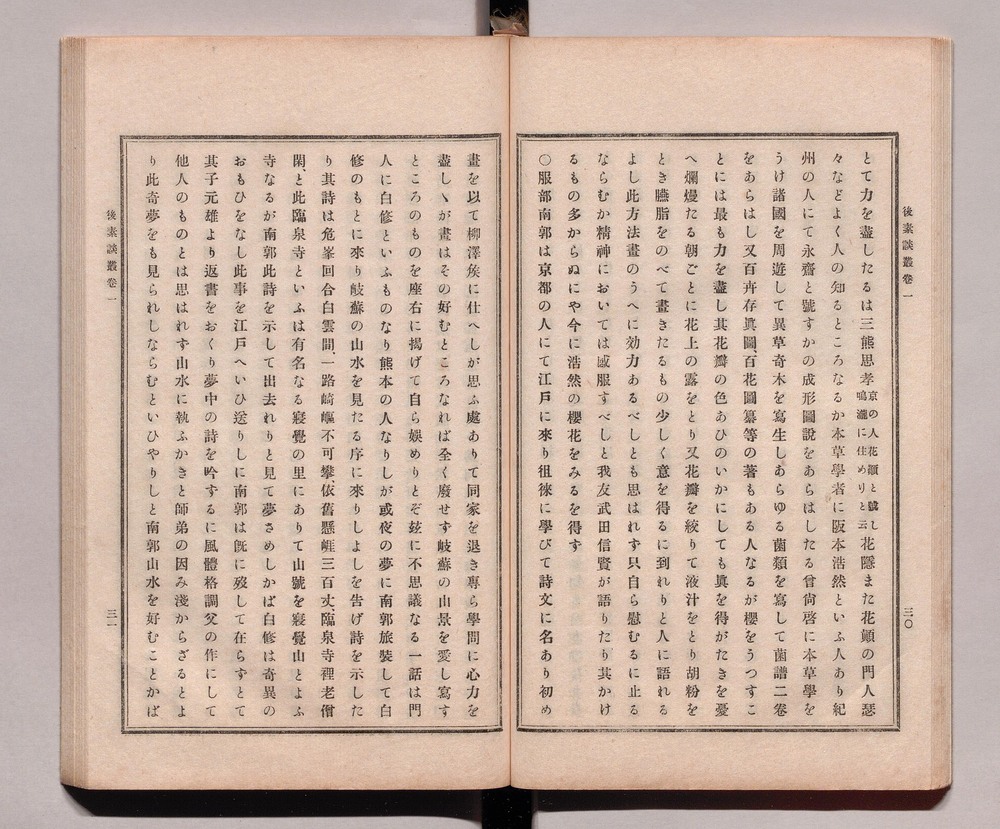 後素談叢卷一
三〇
とて力を盡したるは三熊思孝京の人花顚と號し鳴瀧に住めりと云花隱また花顚の門人瑟
々などよく人の知るところなるか本草學者に阪本浩然といふ人あり紀
州の人にて永齋と號すかの成形圖說をあらはしたる曾尙啓に本草學を
うけ諸國を周遊して異草奇木を寫生しあらゆる菌類を寫して菌譜二卷
をあらはし又百卉存眞圖、百花圖纂等の著もある人なるが櫻をうつすこ
とには最も力を盡し其花瓣の色あひのいかにしても眞を得がたきを憂
へ爛熳たる朝ごとに花上の露をとり又花瓣を絞りて液汁をとり胡粉を
とき臙脂をのべて畫きたるもの少しく意を得るに到れりと人に語れる
よし此方法畫のうへに効力あるべしとも思はれす只自ら慰むるに止る
ならむか精神においては感服すべしと我友武田信賢が語りたり其かけ
るもの多からぬにや今に浩然の櫻花をみるを得す
○服部南郭は京都の人にて江戶に來り徂徠に學びて詩文に名あり初め
畫を以て柳澤侯に仕へしが思ふ處ありて同家を退き專ら學問に心力を
盡しヽが畫はその好むところなれば全く廢せす岐蘇の山景を愛し寫す
ところのものを座右に揭げて自ら娛めりとぞ玆に不思議なる一話は門
人に白修といふものなり熊本の人なりしが或夜の夢に南郭旅裝して白
修のもとに來り岐蘇の山水を見たる序に來りしよしを告げ詩を示した
り其詩は危峯回合白雲間、一路崎嶇不可攀、依舊懸崕三百丈、臨泉寺裡老僧
閑、と此臨泉寺といふは有名なる寢覺の里にありて山號を寢覺山とよふ
寺なるが南郭此詩を示して出去れりと見て夢さめしかば白修は奇異の
おもひをなし此事を江戶へいひ送りしに南郭は旣に歿して在らすとて
其子元雄より返書をおくり夢中の詩を吟するに風體格調父の作にして
他人のものとは思はれす山水に執ふかきと師弟の因み淺からざるとよ
り此奇夢をも見られしならむといひやりしと南郭山水を好むことかば
後素談叢卷一
三一